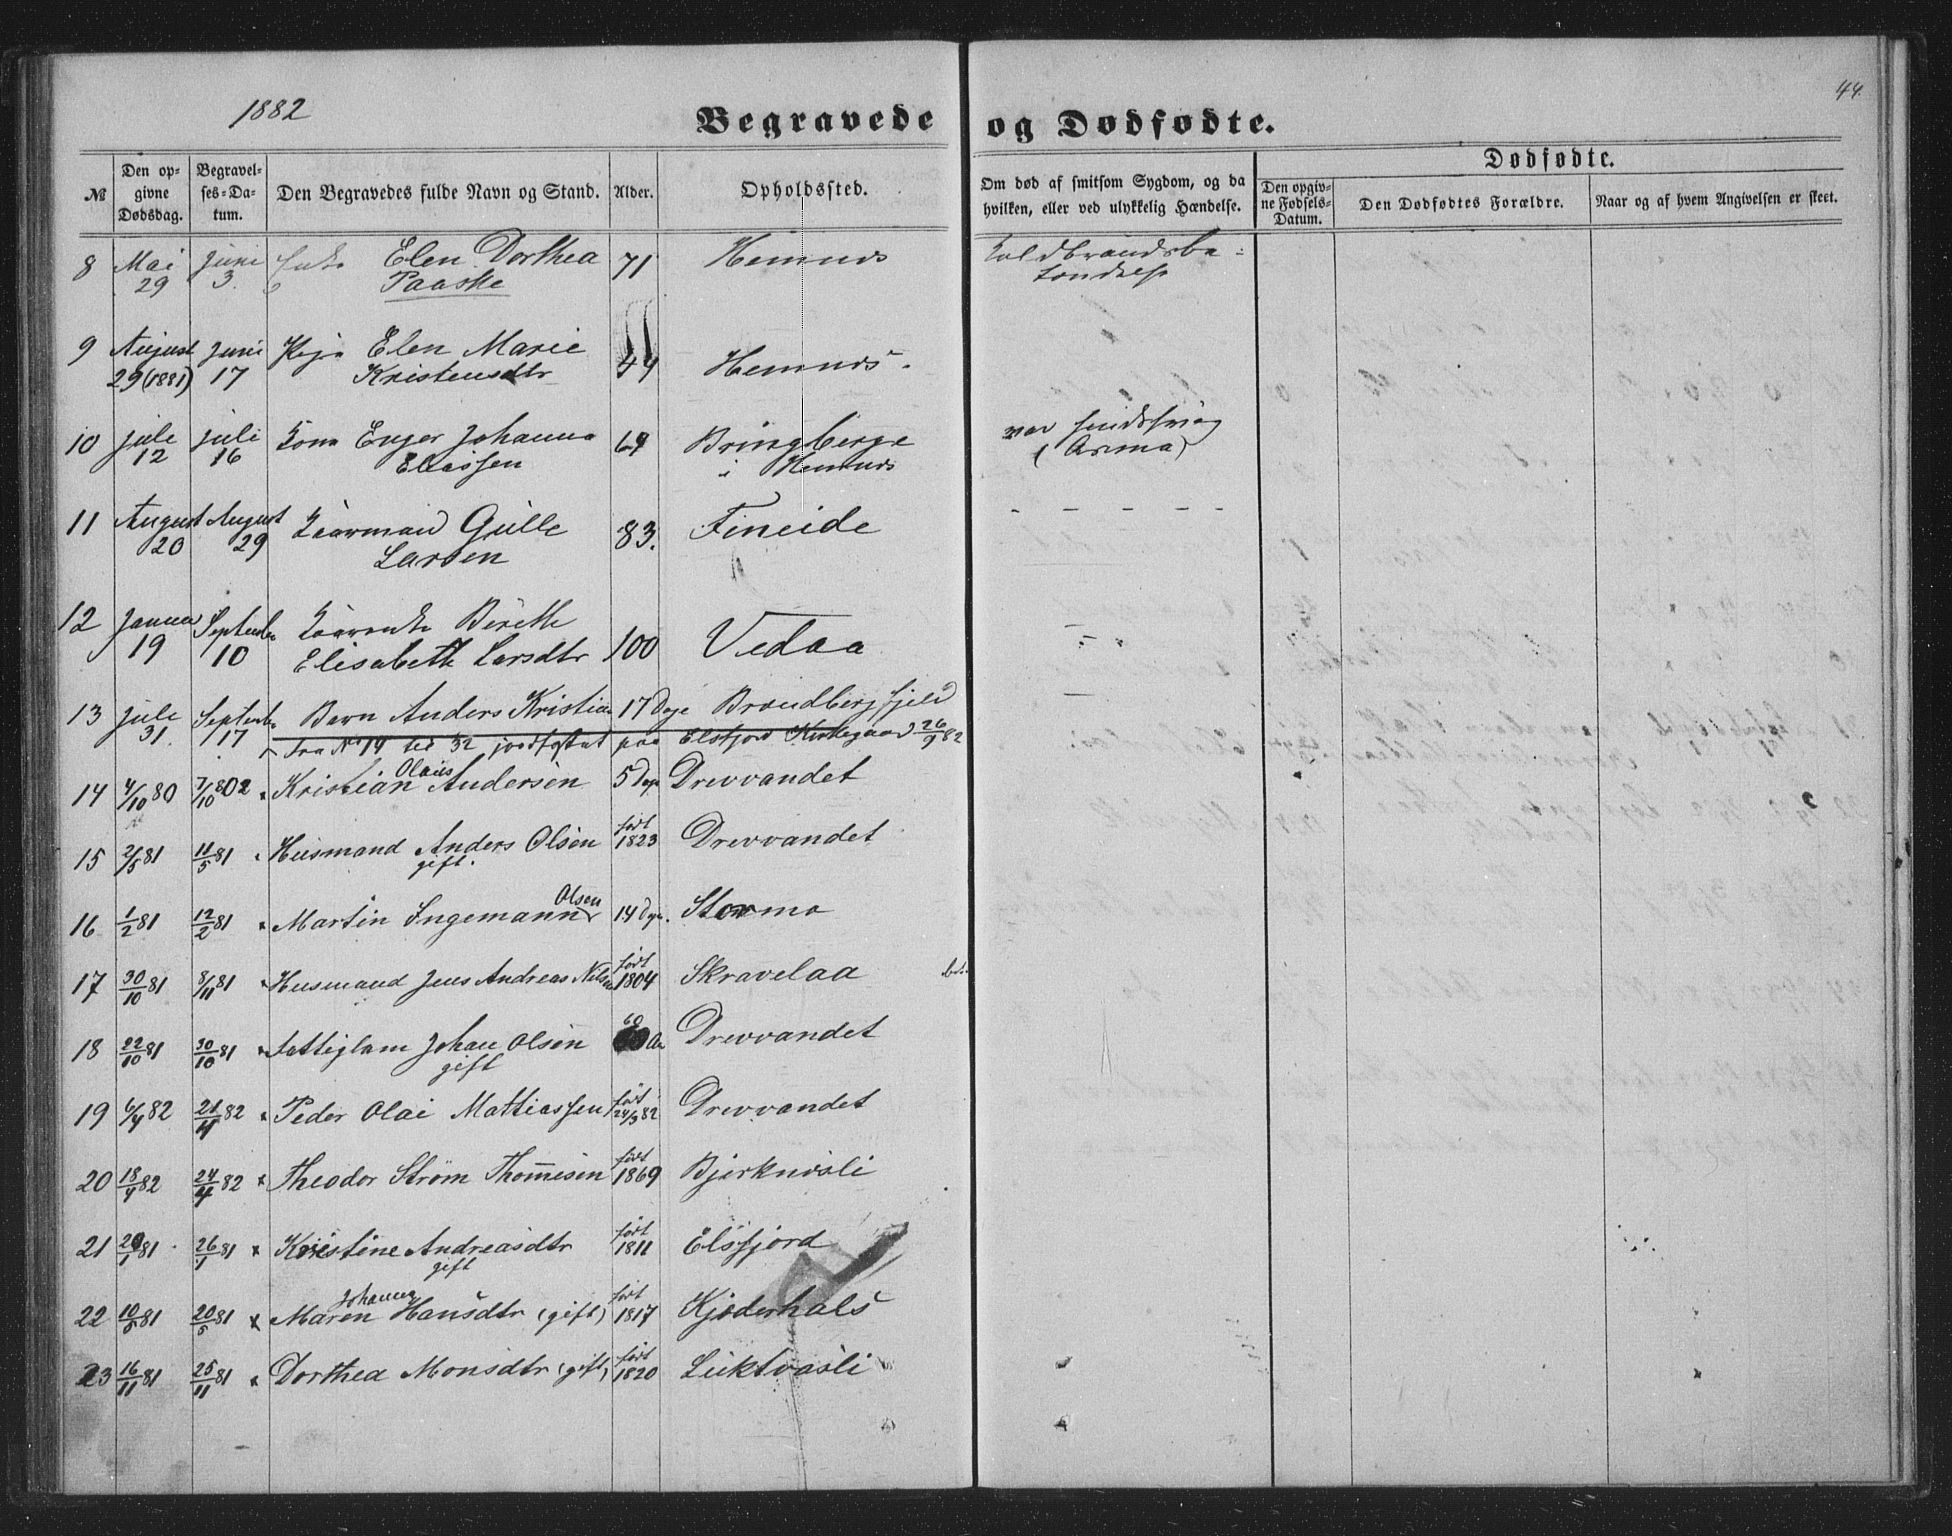 1882
44.
Begravede og Dødfødte.
№
Den opgivne Dødsdag.
Begravelses-Datum.
Den Begravedes fulde Navn og Stand.
Alder.
Opholdssted.
Om død af smitsom Sygdom, og da hvilken, eller ved ulykkelig Hændelse.
Dødfødte.
Den opgivne Fødsels-Datum.
Den Dødfødtes Forældre.
Naar og af hvem Angivelsen er skeet.
8 Mai 29 Juni 3. Enke Elen Dorthea Paaske 71 Hemnes Koldbrandsbetændelse
9 August 29 (1881) Juni 17 Pige Elen Marie Kristensdtr 44 Hemnes.
10 Juli 12 Juli 16 Kone Enger Johanna Eliassen 64 Bringberge i Hemnes var sindssvag
11 August 20 August 29 Kaarmand Gulle Larsen 83. Fineide - - - - -
12 Januar 19 September 10 Kaarenke Berette Elisabeth Larsdtr 100 Vedaa
13 Juli 31. September 17 Barn Anders Kristian 17 Dage Brændbergfjeld
Fra No 14 til 32 jordfæstet paa Elsfjord Kirkegaard 26/9 82
14 4/10 80 7/10 80 Kristian Olaus Andersen 5 Dage Drevvandet
15 2/5 81 11/5 81 Husmand Anders Olsen gift. født 1823 Drevvandet
16 1/2 81 12/2 81 x Martin Ingemann Olsen 14 Dge. Stormo
17 30/10 81 8/11 81 x Husmand Jens Andreas Nilsen født 1804 Skravelaa
18 22/10 81 30/10 81 x Fattiglam Johan Olsen gift 60 Aa Drevvandet
19 6/4 82 21/4 82 x Peder Olai Mattiassen født 24/3 82 Drevvandet
20 18/4 82 24/4 82 x Theodor Strøm Thommesen født 1869 Bjerknesli
21 20/1 81 26/1 81 x Kristine Andreasdtr gift født 1811 Elsfjord
22 10/5 81 20/5 81 x Maren Johanna Hansdtr (gift) født 1817 Kjoderhals
23 16/11 81 25/11 81 x Dorthea Monsdtr (gift) født 1820 Luktvasli